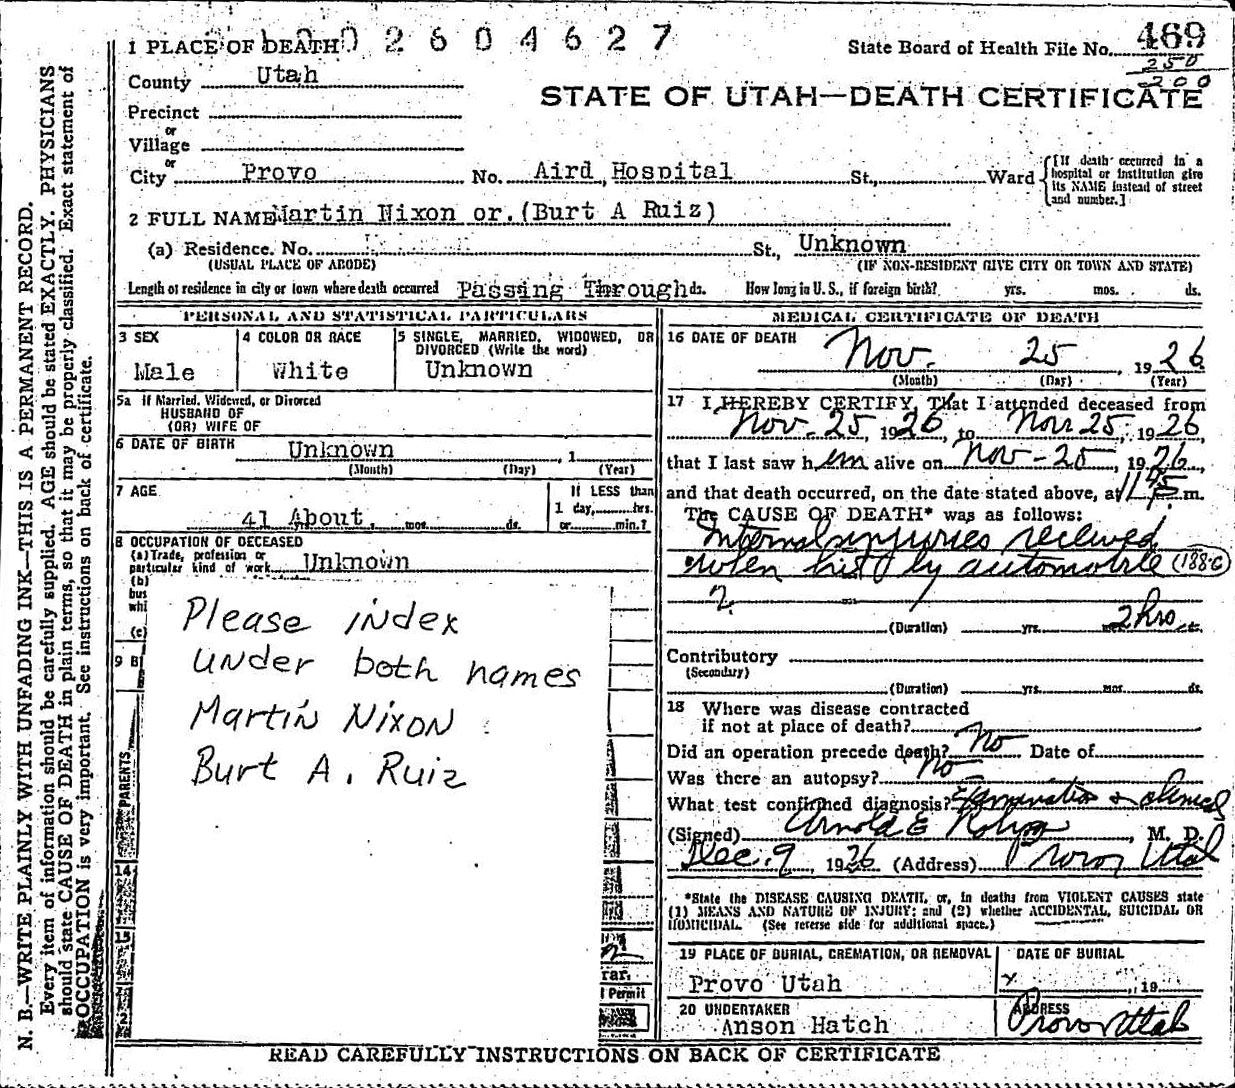 1 PLACE OF DEATH 0 2 6 0 4 6 2 7
State Board of Health File No. 469
250
200
County Utah
STATE OF UTAH—DEATH CERTIFICATE
Precinct
or
Village
or
City Provo No. Aird Hospital St., Ward
[If death occurred in a hospital or institution give its NAME instead of street and number.]
2 FULL NAME Martin Nixon or. (Burt A Ruiz)
(a) Residence. No. St., Unknown
(USUAL PLACE OF ABODE) (IF NON-RESIDENT GIVE CITY OR TOWN AND STATE)
Length of residence in city or town where death occurred Passing Through ds. How long in U. S., if foreign birth? yrs. mos. ds.
PERSONAL AND STATISTICAL PARTICULARS
3 SEX
Male
4 COLOR OR RACE
White
5 SINGLE, MARRIED, WIDOWED, OR
DIVORCED (Write the word)
Unknown
5a If Married, Widowed, or Divorced
HUSBAND OF
(OR) WIFE OF
6 DATE OF BIRTH Unknown , 1
(Month) (Day) (Year)
7 AGE
41 About yrs. mos. ds.
If LESS than
1 day, hrs.
or min.?
8 OCCUPATION OF DECEASED
(a) Trade, profession or
particular kind of work Unknown
(b)
bus
whi
(c)
9 B
PARENTS
14
15
Please index
under both names
Martin Nixon
Burt A. Ruiz
rar.
l Permit
MEDICAL CERTIFICATE OF DEATH
16 DATE OF DEATH
Nov. 25, 1926
(Month) (Day) (Year)
17 I HEREBY CERTIFY, That I attended deceased from
Nov. 25, 1926, to Nov 25, 1926,
that I last saw him alive on Nov-25, 1926,
and that death occurred, on the date stated above, at 1145 P. m.
The CAUSE OF DEATH* was as follows:
Internal injuries received
when hit by automobile (188-c)
(Duration) yrs. mos. 2 hrs. ds.
Contributory
(Secondary)
(Duration) yrs. mos. ds.
18 Where was disease contracted
if not at place of death?
Did an operation precede death? No Date of
Was there an autopsy? No
What test confirmed diagnosis? Examination & clinical
(Signed) Arnold E , M. D.
Dec. 9, 1926 (Address) Provo, Utah
*State the DISEASE CAUSING DEATH, or, in deaths from VIOLENT CAUSES state
(1) MEANS AND NATURE OF INJURY; and (2) whether ACCIDENTAL, SUICIDAL OR
HOMICIDAL. (See reverse side for additional space.)
19 PLACE OF BURIAL, CREMATION, OR REMOVAL
Provo Utah
DATE OF BURIAL
x , 19
20 UNDERTAKER
Anson Hatch
ADDRESS
Provo Utah
READ CAREFULLY INSTRUCTIONS ON BACK OF CERTIFICATE
N. B.—WRITE PLAINLY WITH UNFADING INK—THIS IS A PERMANENT RECORD.
Every item of information should be carefully supplied. AGE should be stated EXACTLY. PHYSICIANS
should state CAUSE OF DEATH in plain terms, so that it may be properly classified. Exact statement of
OCCUPATION is very important. See instructions on back of certificate.